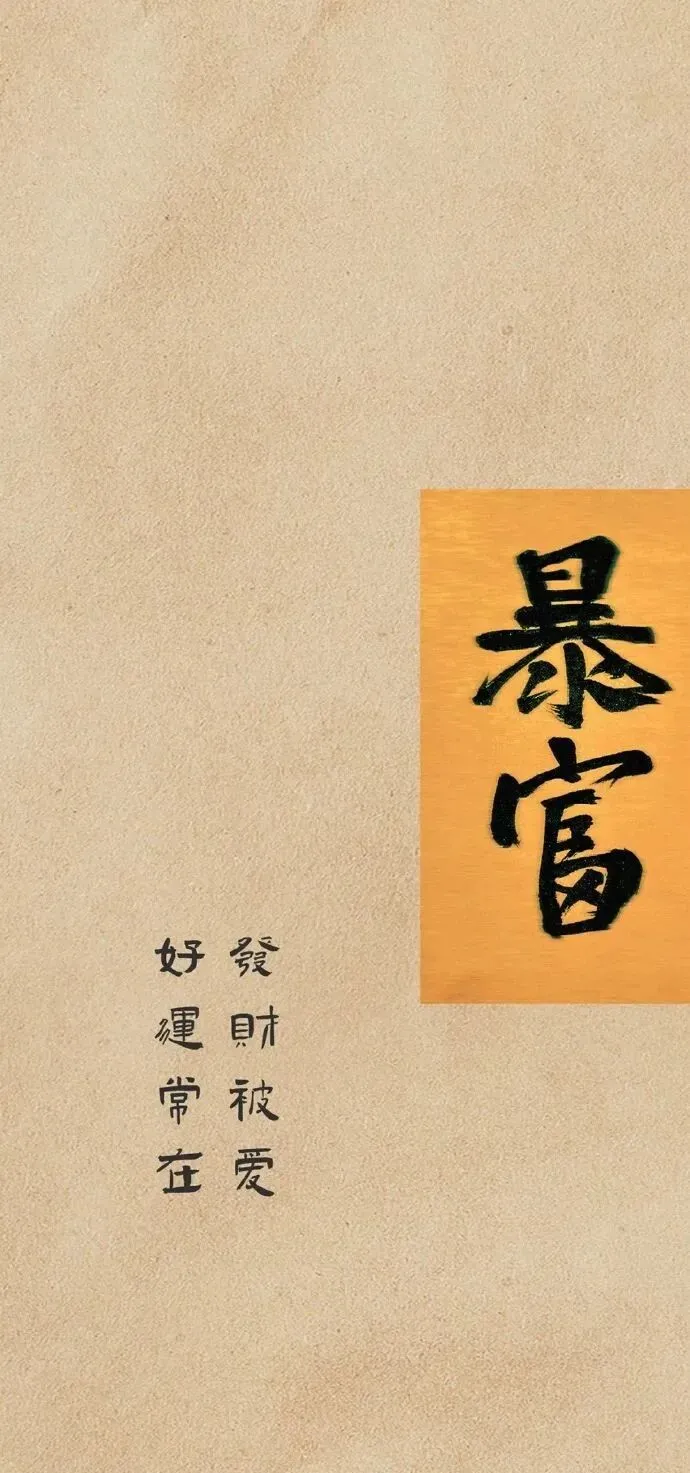 暴富
發財被爱
好運常在